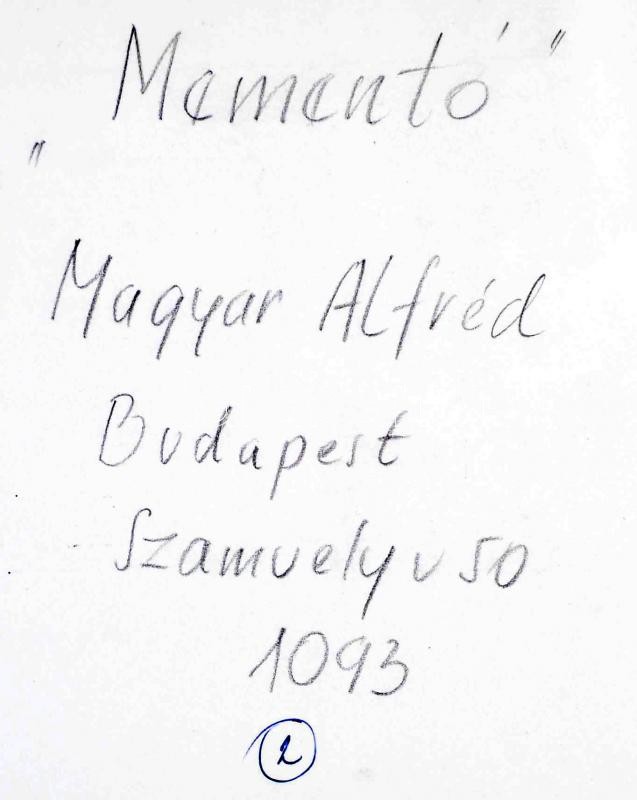 „Mementó"
Magyar Alfréd
Budapest
Szamuely u 50
1093
2